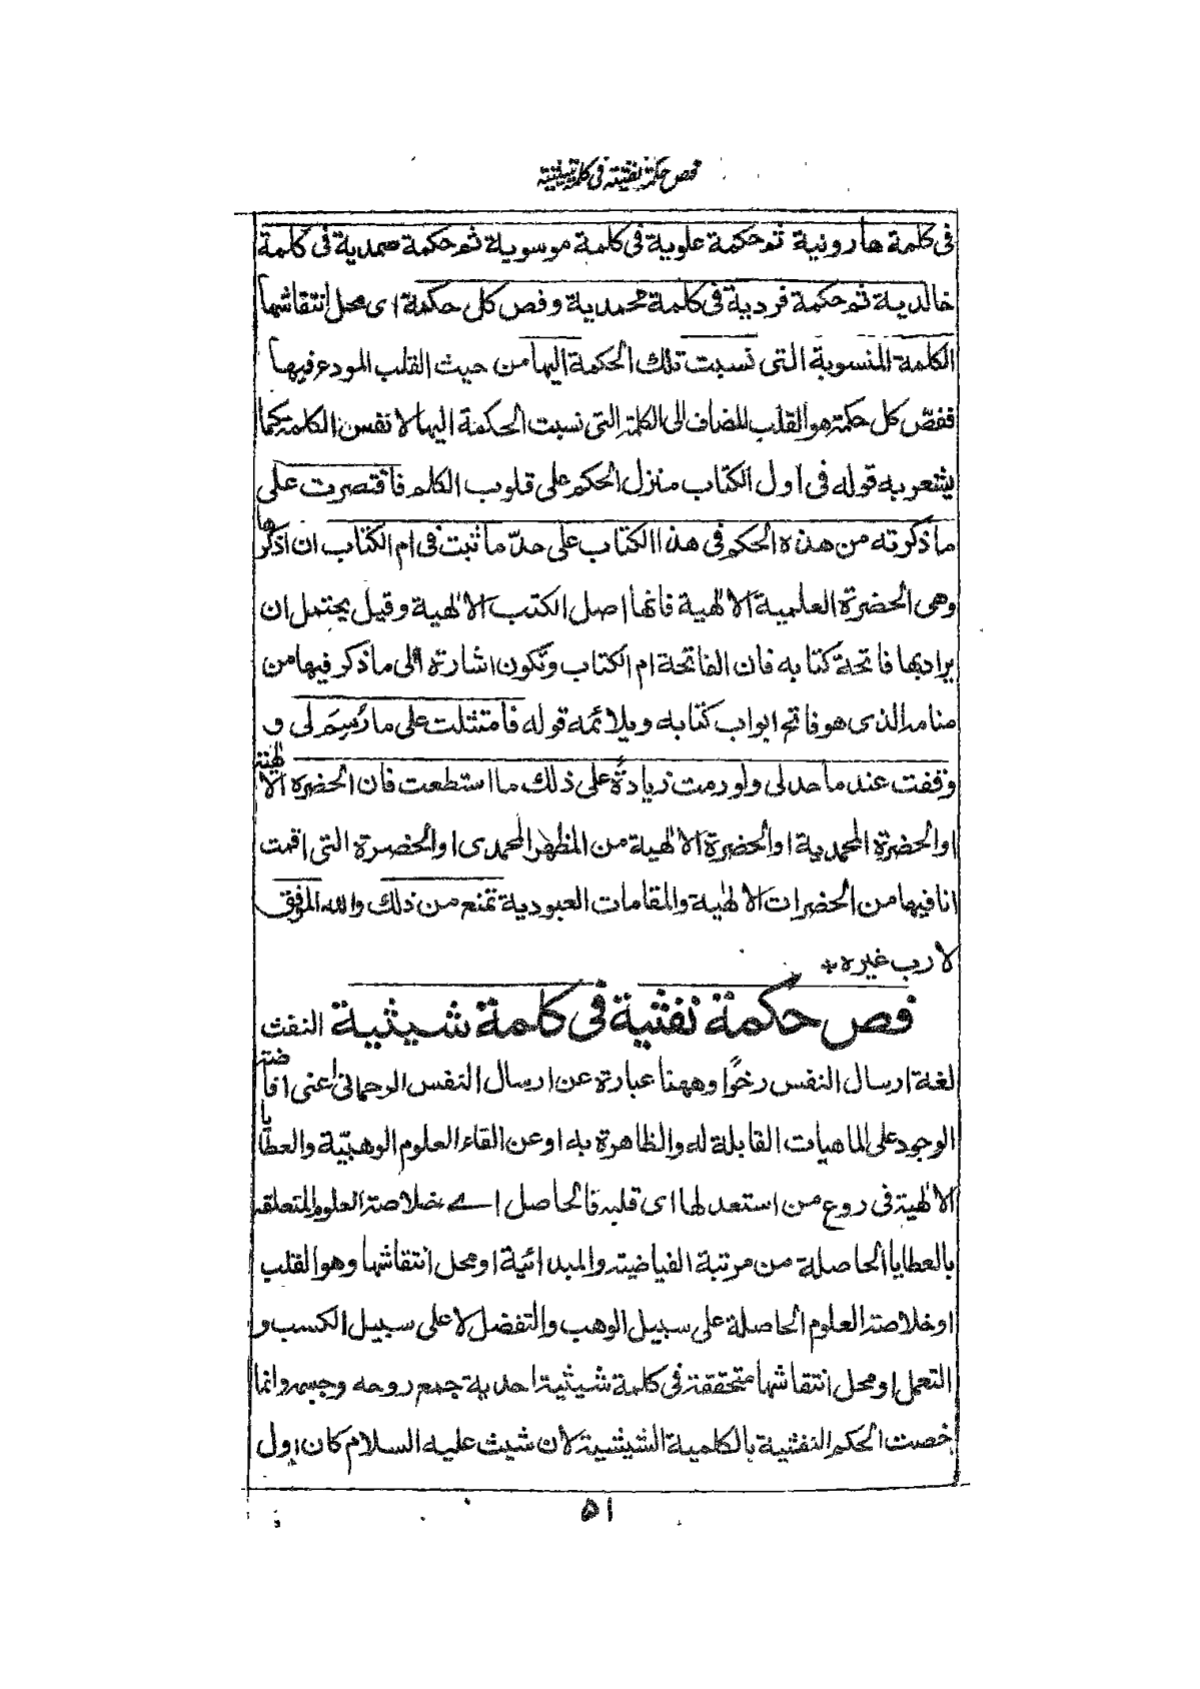 فص حكمة نفثية فى كلمة شيثية
فى كلمة هارونية ثم حكمة علوية فى كلمة موسوية ثم حكمة صمدية فى كلمة
خالدية ثم حكمة فردية فى كلمة محمدية وفص كل حكمة اى محل انتقاشها
الكلمة المنسوبة التى نسبت تلك الحكمة اليها من حيث القلب المودع فيها
ففصّ كل حكمة هو القلب المضاف الى الكلمة التى نسبت الحكمة اليها لا نفس الكلمة كما
يشعر به قوله فى اول الكتاب منزل الحكم على قلوب الكلم فاقتصرت على
ما ذكرته من هذه الحكم فى هذا الكتاب على حدّ ما ثبت فى ام الكتاب ان اذكرها
وهى الحضرة العلمية الالٰهية فانها اصل الكتب الالٰهية وقيل يحتمل ان
يراد بها فاتحة كتابه فان الفاتحة ام الكتاب وتكون اشارة الى ما ذكر فيها من
منامه الذى هو فاتح ابواب كتابه ويلائمه قوله فامتثلت على ما رُسِمَ لى و
وقفت عند ما حد لى ولو رمت زيادةً على ذلك ما استطعت فان الحضرة الالٰهية
او الحضرة المحمدية او الحضرة الالٰهية من المظهر المحمدى او الحضرة التى اقمت
انا فيها من الحضرات الالٰهية والمقامات العبودية تمنع من ذلك والله الموفق
لا رب غيره
فص حكمة نفثية فى كلمة شيثية النفث
لغة ارسال النفس رخوًا وههنا عبارة عن ارسال النفس الرحمانى اعنى افاضة
الوجود على الماهيات القابلة له والظاهرة به او عن القاء العلوم الوهبيّة والعطايا
الالٰهية فى روع من استعد لها اى قلبه فالحاصل اے خلاصة العلوم المتعلقة
بالعطايا الحاصلة من مرتبة الفياضية والمبدائية او محل انتقاشها وهو القلب
او خلاصة العلوم الحاصلة على سبيل الوهب والتفضل لا على سبيل الكسب و
التعمل او محل انتقاشها متحققة فى كلمة شيثية احدية جمع روحه وجسمه وانما
خصت الحكم النفثية بالكلمية الشيثية لان شيث عليه السلام كان اول
۵۱